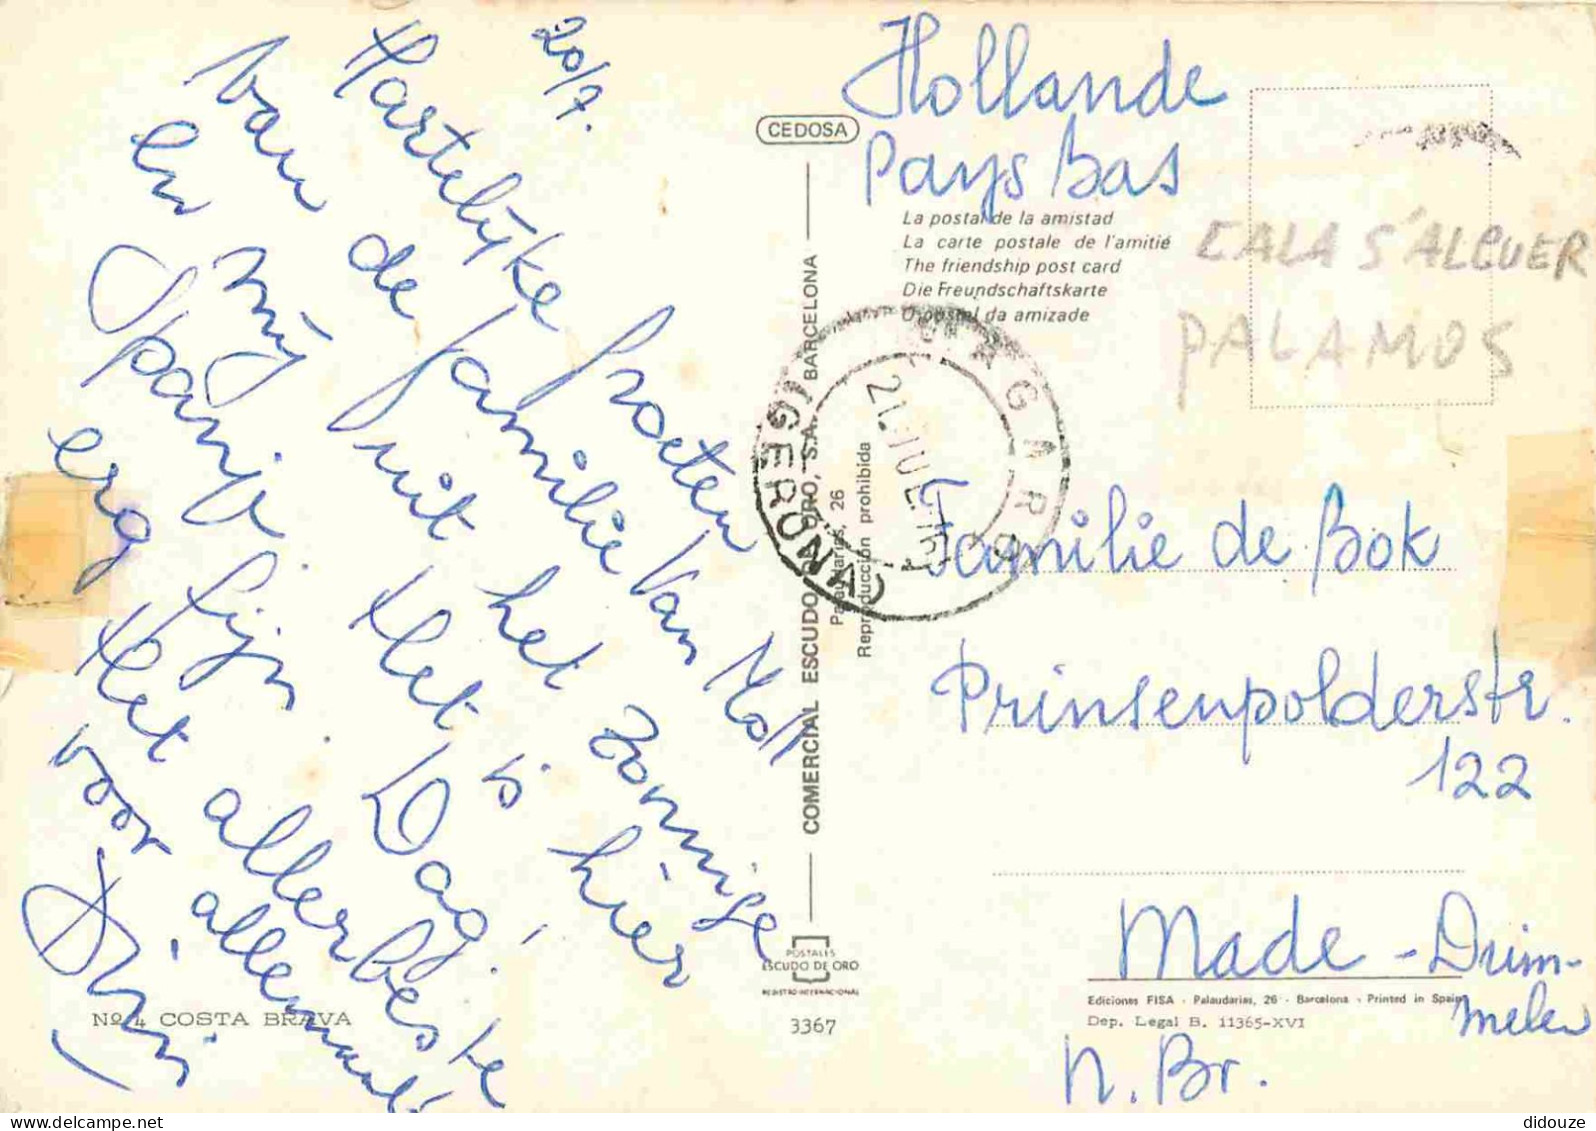 20/7.
Hartelijke groeten
van de familie Van Moll
En mij uit het zonnige
Spanje Het is hier
erg fijn. Dag.
Het allerbeste
voor allemaal
Nº 4 COSTA BRAVA
CEDOSA
COMERCIAL ESCUDO DE ORO, S.A. BARCELONA
Palaudarias, 26
Reproducción prohibida
POSTALES
ESCUDO DE ORO
REGISTRO INTERNACIONAL
3367
Hollande
Pays Bas
La postal de la amistad
La carte postale de l'amitié
The friendship post card
Die Freundschaftskarte
O postal da amizade
CALA S'ALGUER
PALAMOS
(GERONA)
21 JUL
Familie de Bok
Prinsenpolderstr.
122
Made - Drim-
melen
Ediciones FISA - Palaudarias, 26 - Barcelona - Printed in Spain
Dep. Legal B. 11365-XVI
N. Br.
didouze